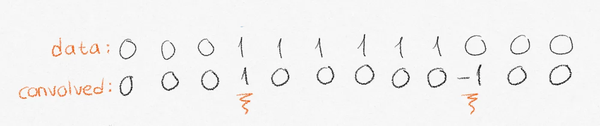 data: 0 0 0 1 1 1 1 1 1 0 0 0
convolved: 0 0 0 1 0 0 0 0 0 -1 0 0